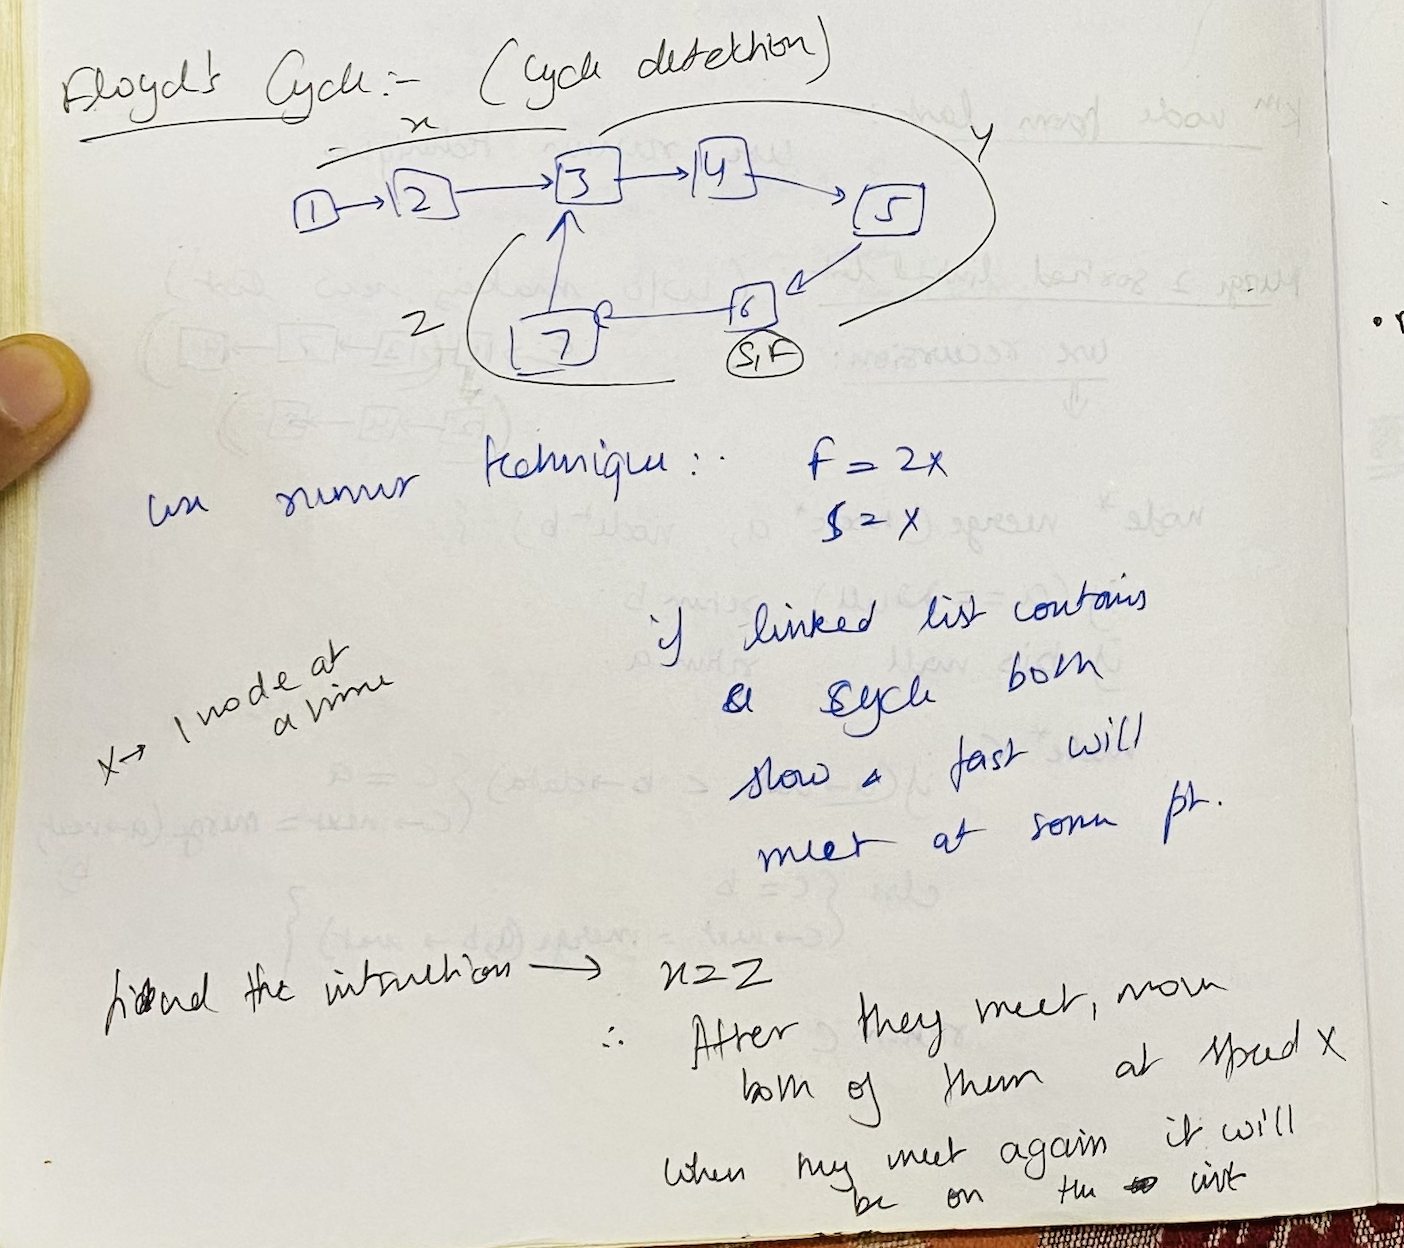 Floyd's Cycle:- (Cycle detekhion)
x
y
1 2 3 4
5
z 7 6
S,F
use runner technique:. f = 2x
S = x
if linked list contains
a cycle both
x→ 1 node at
a time
slow & fast will
meet at some pt.
find the intersection → x=z
∴ After they meet, move
both of them at speed x
when they meet again it will
be on the int